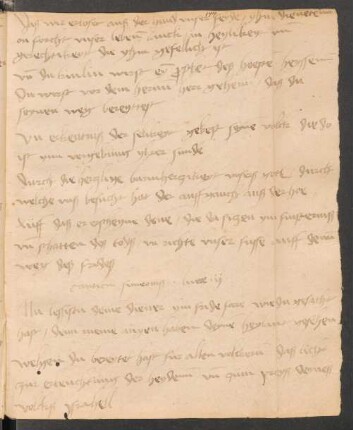 Das wir erloset aus der hand unser feynde, ohne dienete
on forcht unser leben lanck in heylikeyt un
gerechtikeyt die yhm gefellich ist
un du kindlin wirst eyn prophet des hoesten heyssen
Du wirst vor dem herrn her gehen das du
seynen weg bereytest
Un erkentnis der selikeyt gebest syne volck die do
ist zum vergebung yhrer sunde
durch die hertzliche barmhertzikeyt unsers gots durch
welche uns besucht hat der auffganck aus der hoe
Auff das er erscheyne denen die da sitzen ym finsternis
un schatten des tods, un richte unser fusse auff den
weg des frides
Canticum Simeonis Luce ij
Nu lessestu deine diener ym fride faren wie du gesacht
hast, denn meine augen haben deyne heylant gesehen
Welchen du bereyt hast fur allen volckern das liecht
zur erleuchtung der heyden un zum preys deynes
volcks Israhell